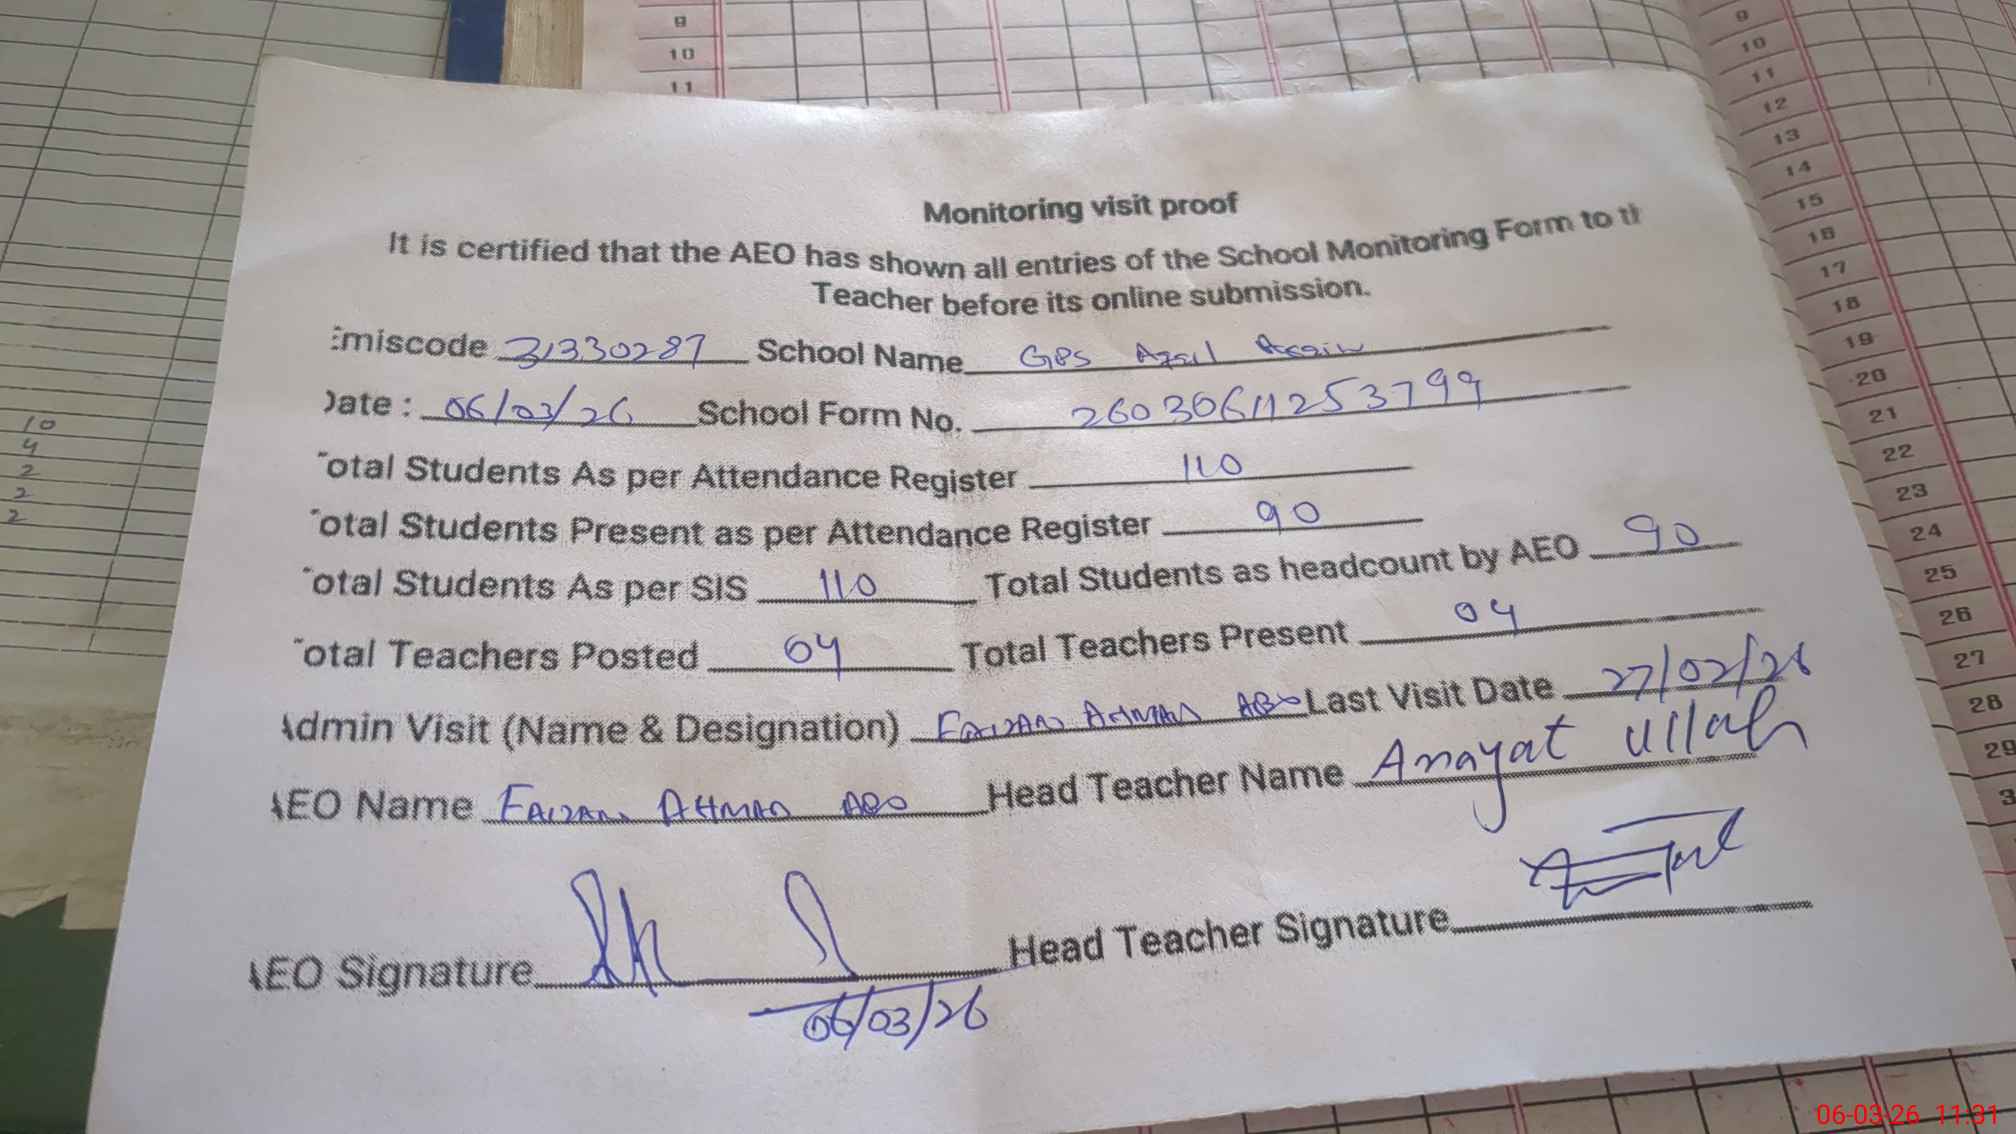 9
10
11
9
10
11
12
13
14
15
16
17
18
19
20
21
22
23
24
25
26
27
28
29
3
10
4
2
2
2
Monitoring visit proof
It is certified that the AEO has shown all entries of the School Monitoring Form to th
Teacher before its online submission.
Emiscode 31330287 School Name GPS
Date : 06/03/26 School Form No. 26030611253799
Total Students As per Attendance Register 110
Total Students Present as per Attendance Register 90
Total Students As per SIS 110 Total Students as headcount by AEO 90
Total Teachers Posted 04 Total Teachers Present 04
Admin Visit (Name & Designation) FAIZAN AHMAD AEO Last Visit Date 27/02/26
AEO Name FAIZAN AHMAD AEO Head Teacher Name Anayat Ullah
AEO Signature Head Teacher Signature
06/03/26
06-03-26 11:31